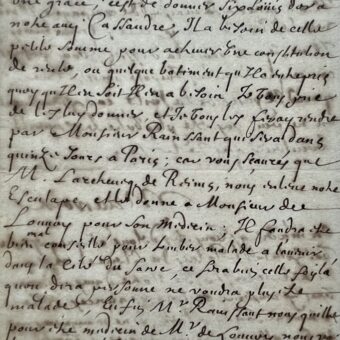 une grace, c'est de donner six louis d'or à
nostre amy Cassandre; Il a besoin de cette
petite somme pour achever une constitution
de rente, ou quelque batiment qu'Il a entrepris
quoy qu'Il en soit Il en a besoin. Je vous prie
de les luy donner, et Je vous les feray rendre
par Monsieur Rainssant qui sera dans
quinze Jours à Paris; car vous sçaurez que
Mr. L'archevesq de Reims, nous enleve notre
Esculape, et le donne a Monsieur de
Louvoy pour son Medecin; Il faudra estre
bien conseillé pour tomber malade a l'avenir
dans la Cité du Sacre, ce sera bien celle fois là
qu'on dira personne ne voudra plus estre
malade, Enfin Mr. Rainssant nous quitte
pour estre medecin de Mr. de Louvois, nous